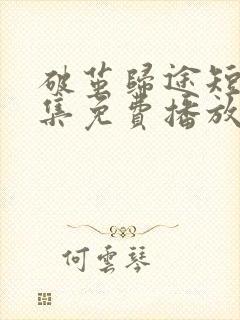 破茧歸途短
集免費播放
何雲琴